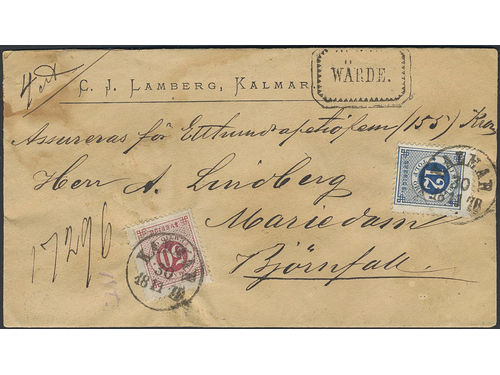 4 ort
C. J. LAMBERG, KALMAR.
WÄRDE.
Assureras för Etthundrafemtiofem (155) Kron
Herr A. Lindberg
Mariedam
Björnfall.
17296
12
KALMAR
30
11
78
50
KALMAR
30
18 11 78